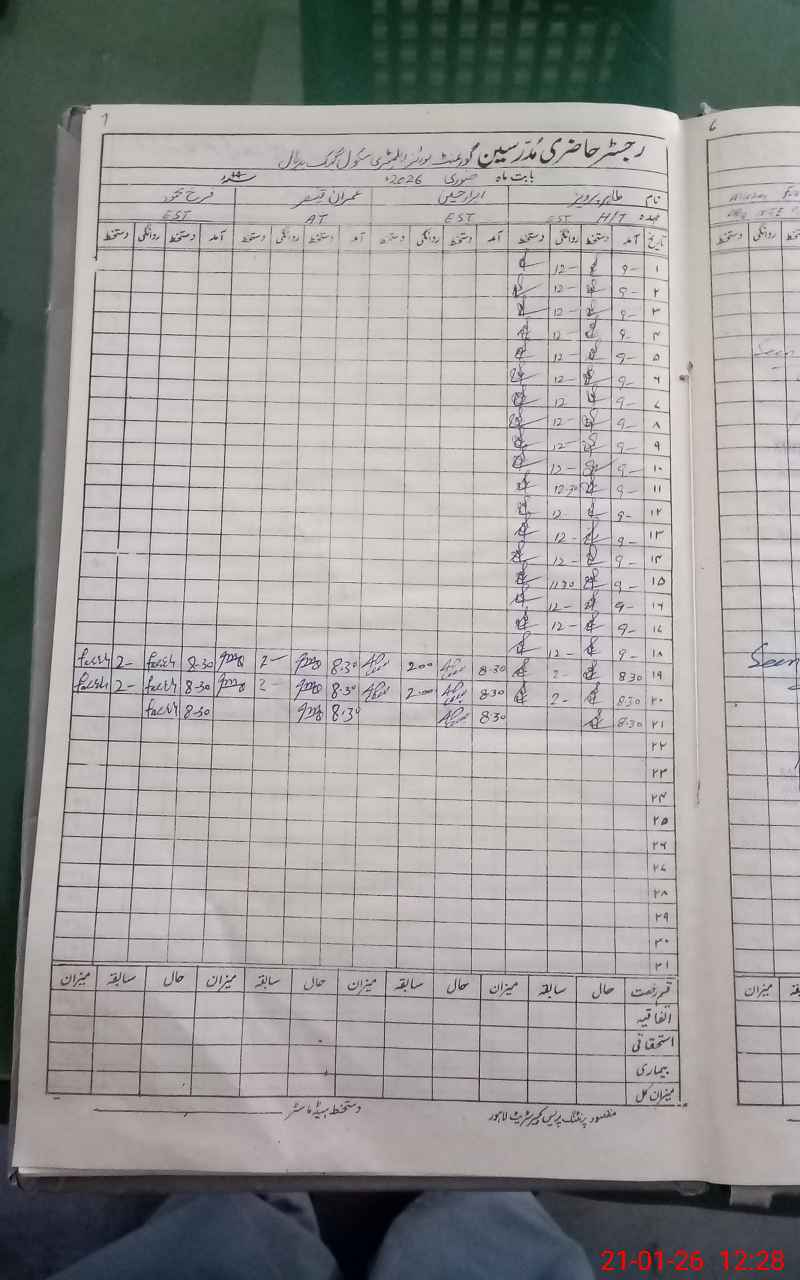 1
رجسٹر حاضری مدرسین گورنمنٹ بوائز ایلیمنٹری سکول
بابت ماہ جنوری 2026ء
نام طاہر پرویز ابرار حسین عمران قیصر فرخ محمود
عہدہ H/T EST EST AT EST
تاریخ آمد دستخط روانگی دستخط آمد دستخط روانگی دستخط آمد دستخط روانگی دستخط آمد دستخط روانگی دستخط
۱ 9- 12-
۲ 9- 12-
۳ 9- 12-
۴ 9- 12-
۵ 9- 12-
۶ 9- 12-
۷ 9- 12
۸ 9- 12-
۹ 9- 12-
۱۰ 9- 12-
۱۱ 9- 12-30
۱۲ 9- 12
۱۳ 9- 12-
۱۴ 9- 12-
۱۵ 9- 1130
۱۶ 9- 12-
۱۷ 9- 12-
۱۸ 9- 12-
۱۹ 8 30 2- 8-30 200 8.30 2- 8-30 2-
۲۰ 8 30 2- 8 30 2-00 8.30 2- 8-30 2-
۲۱ 8-30 8-30 8.30 8-30
۲۲
۲۳
۲۴
۲۵
۲۶
۲۷
۲۸
۲۹
۳۰
۳۱
قسم رخصت حال سابقہ میزان حال سابقہ میزان حال سابقہ میزان حال سابقہ میزان
اتفاقیہ
استحقاقی
بیماری
میزان کل
دستخط ہیڈ ماسٹر
مقصود پرنٹنگ پریس کچہری سٹریٹ لاہور
دستخط روانگی
Seen
Seen
میزان
21-01-26 12:28